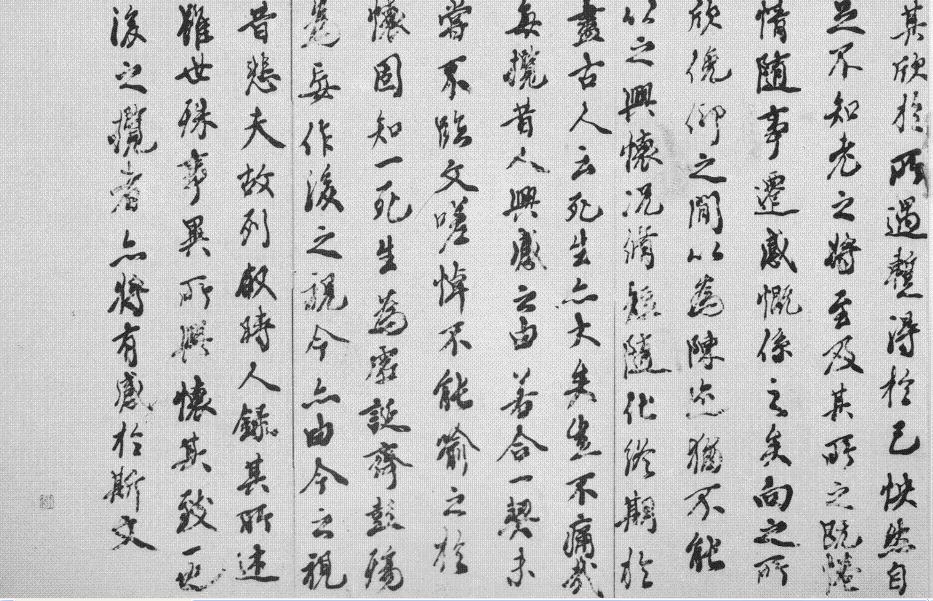 其欣於所遇蹔得於己怏然自
足不知老之將至及其所之既惓
情隨事遷感慨係之矣向之所
欣俛仰之閒以為陳迹猶不能
以之興懷況脩短隨化終期於
盡古人云死生亦大矣豈不痛哉
每攬昔人興感之由若合一契未
嘗不臨文嗟悼不能喻之於
懷固知一死生為虛誕齊彭殤
為妄作後之視今亦由今之視
昔悲夫故列敘時人錄其所述
雖世殊事異所以興懷其致一也
後之攬者亦將有感於斯文